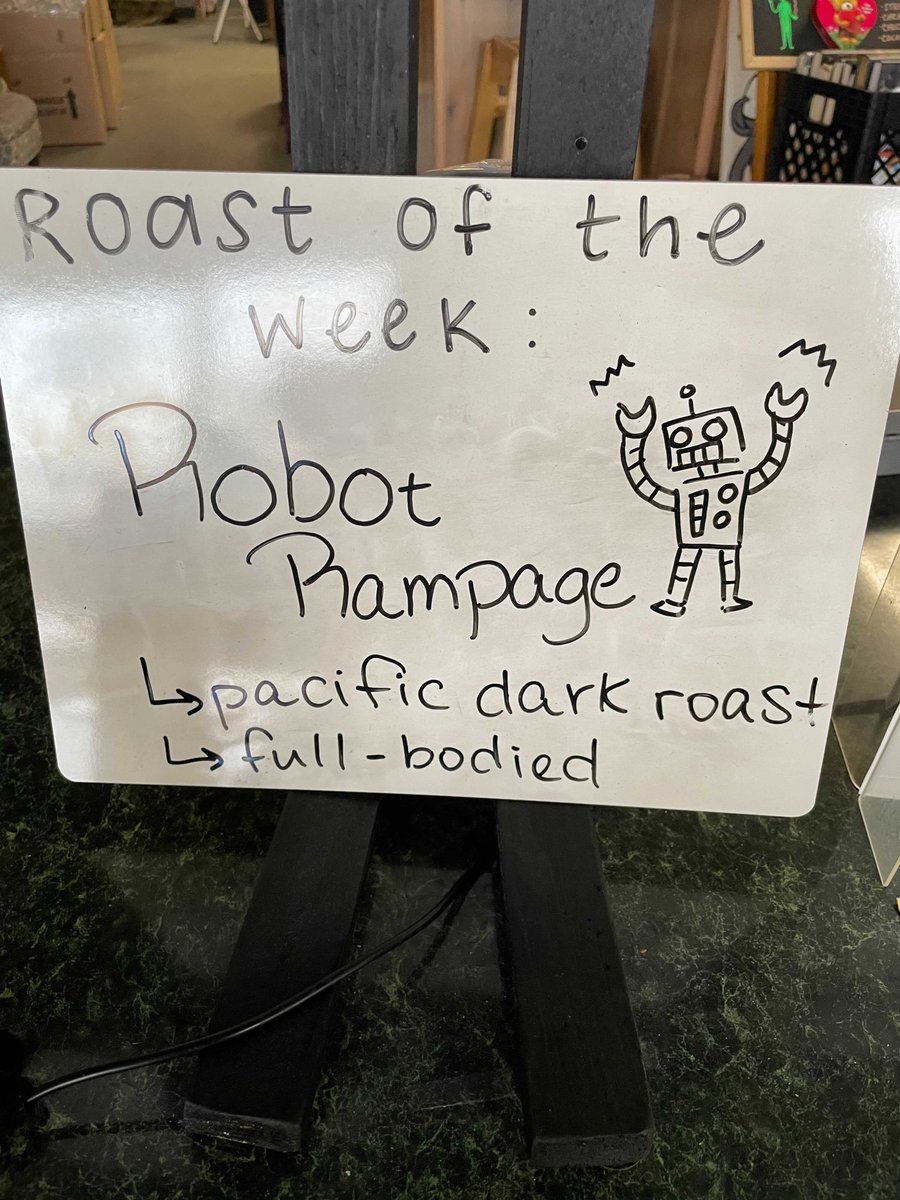 Roast of the
week:
Robot
Rampage
↳ pacific dark roast
↳ full-bodied